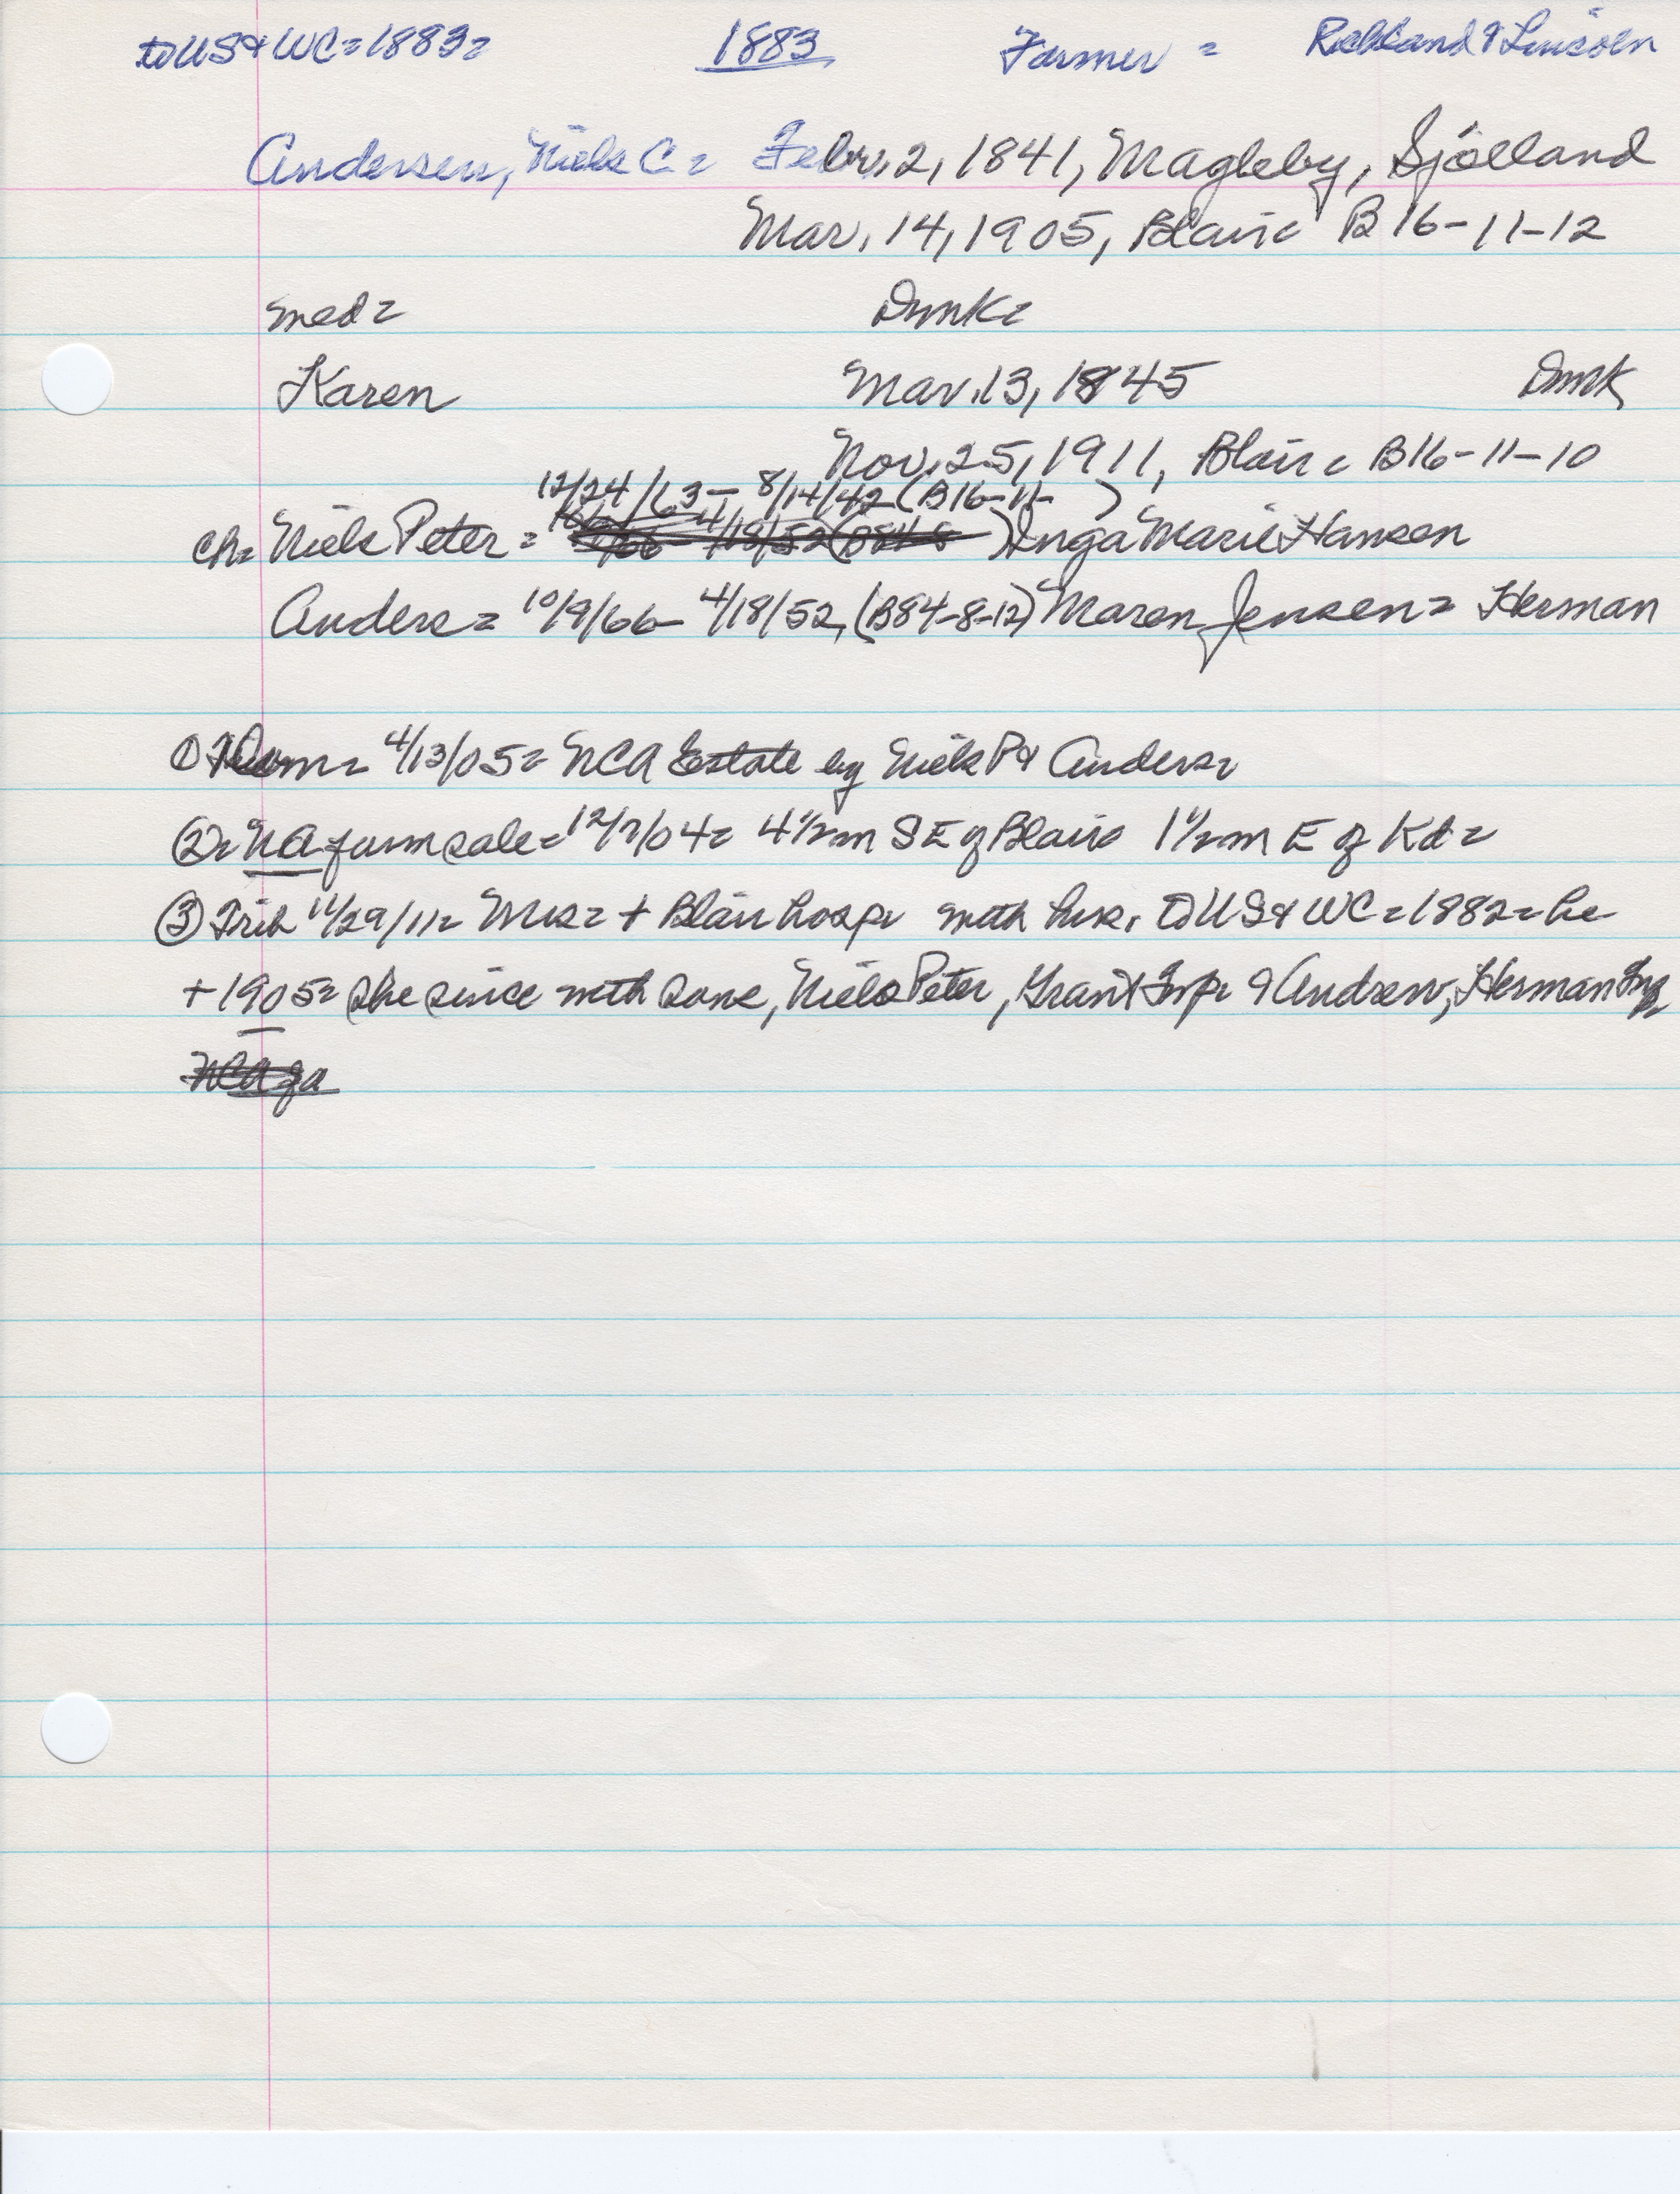 to US & WC = 1883 = 1883 Farmer = Richland & Lincoln
Andersen, Niels C = Febr. 2, 1841, Magleby, Sjælland
Mar. 14, 1905, Blair = B 16-11-12
med = Dmk =
Karen Mar. 13, 1845 Dmk
Nov. 25, 1911, Blair = B16-11-10
12/24/63 - 8/14/42 (B16-11- )
ch = Niels Peter = Inga Marie Hansen
Anders = 10/9/66 - 4/18/52, (B84-8-12) Maren Jensen = Herman
① 4/13/05 = NCA Estate by Niels P & Anders =
② = NA farm sale = 12/7/04 = 4 1/2 m SE of Blair 1 1/2 m E of Kd =
③ Trib 11/29/11 = Mrs = + Blair hosp = with hus. to US & WC = 1882 = he
+ 1905 = she since with sons, Niels Peter, Grant Twp = & Andrew, Herman